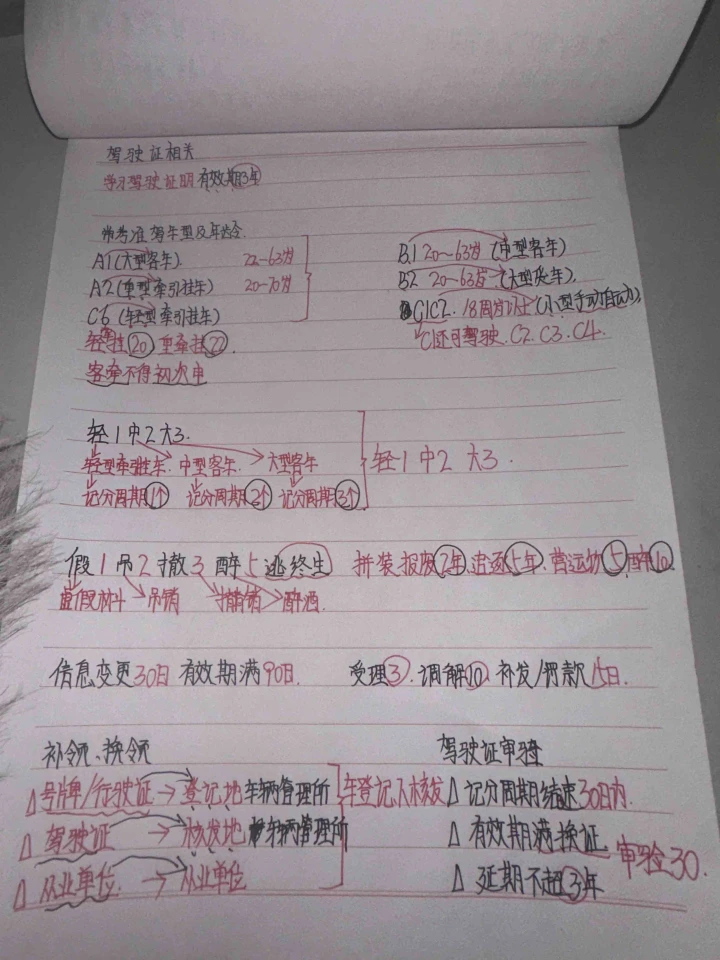 驾驶证相关
学习驾驶证明有效期3年
常考准驾车型及年龄
A1(大型客车) 22~63岁
A2(重型牵引挂车) 20~70岁
C6(轻型牵引挂车)
轻牵挂20 重牵挂22
客牵不得初次申
B1 20~63岁(中型客车)
B2 20~63岁(大型货车)
C1C2 18周岁以上(小型手动自动)
C1还可驾驶.C2.C3.C4
轻1中2大3.
轻型牵引挂车 中型客车 大型客车
记分周期1个 记分周期2个 记分周期3个
轻1中2大3.
假1吊2撤3醉5逃终生 拼装报废2年.追逐5年.营运饮5醉10
虚假材料 吊销 撤销 醉酒
信息变更30日 有效期满90日. 受理3.调解10.补发/罚款15日.
补领、换领
△号牌/行驶证→登记地车辆管理所
△驾驶证→核发地车辆管理所
△从业单位→从业单位
车登记人核发
驾驶证审验
△记分周期结束30日内.
△有效期满换证
△延期不超3年
审验30.